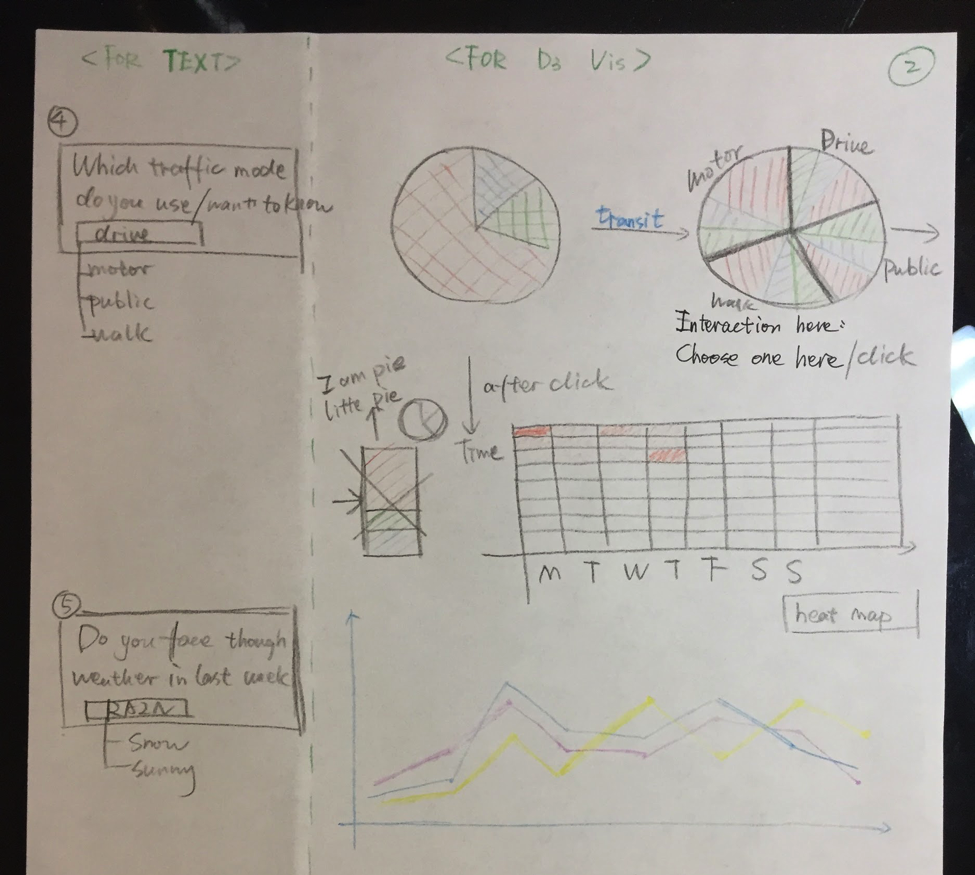 <FOR TEXT>
<FOR D3 Vis>
2
4
Which traffic mode
do you use/want to know
drive
motor
public
walk
motor
Drive
transit
public
walk
Interaction here:
Choose one here/click
I am pie
litte pie
after click
Time
M T W T F S S
heat map
5
Do you face though
weather in last week
RAIN
Snow
Sunny